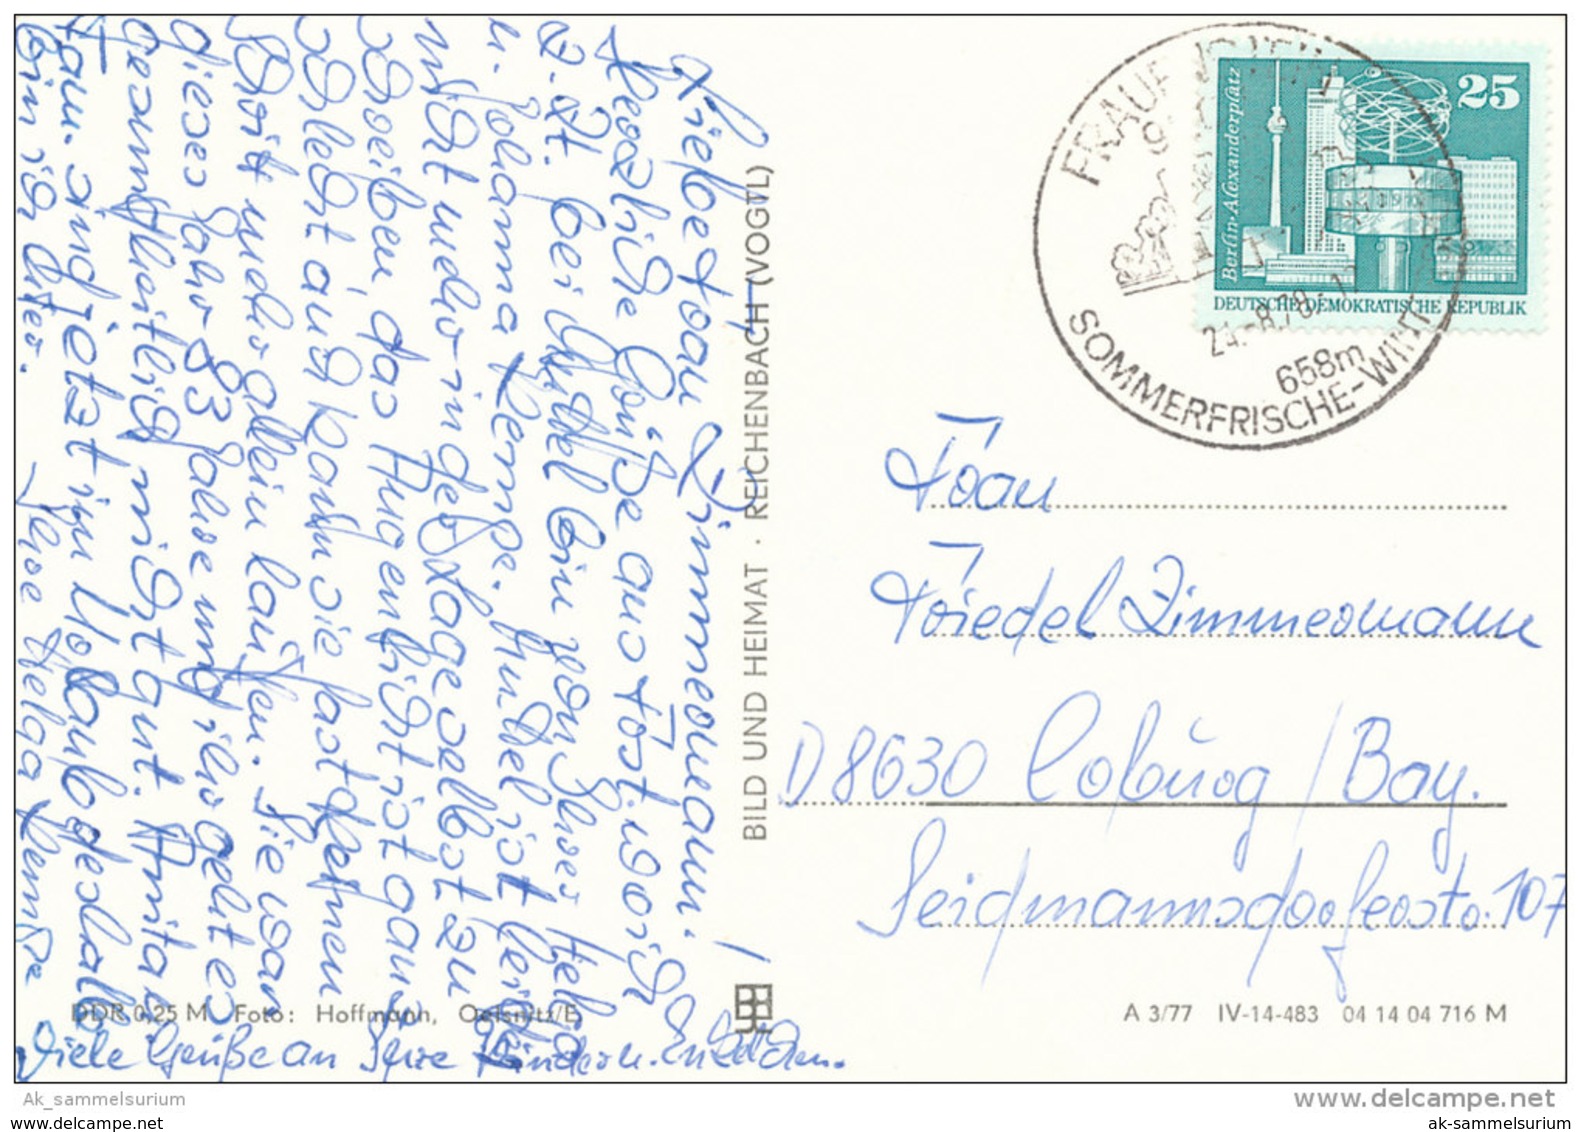 Liebe Frau Zimmermann!
Herzliche Grüße aus Föst. worin
z. Zt. bei Muttel bin von Ihrer Helga
u. Johanna Kempe. Muttel ist leider
nicht mehr in der Lage selbst zu
schreiben, das Augenlicht ist ganz
schlecht auch kann sie fast keinen
Schritt mehr allein laufen. Sie war
dieses Jahr 83 Jahre und ihr geht es
gesundheitlich nicht gut. Anita u.
Fam. sind jetzt im Urlaub deshalb
bin ich hier. Ihre Helga Kempe
Viele Grüße an Ihre Kinder u. Enkelchen.
DDR 0,25 M Foto: Hoffmann, Oelsnitz/E.
BILD UND HEIMAT · REICHENBACH (VOGTL)
A 3/77 IV-14-483 04 14 04 716 M
SOMMERFRISCHE-WINT
658m
24.-8.78.-17
25
Berlin-Alexanderplatz
DEUTSCHE DEMOKRATISCHE REPUBLIK
Frau
Friedel Zimmermann
D 8630 Coburg / Bay.
Seidmannsdorferstr. 107
Ak_sammelsurium
www.delcampe.net
www.delcampe.net
ak-sammelsurium